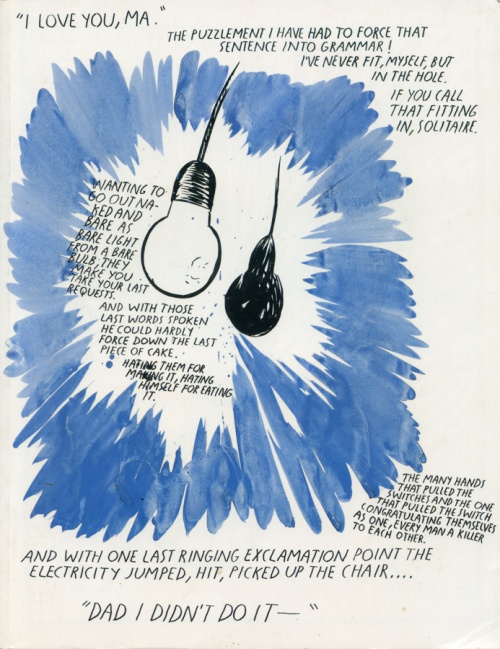 "I LOVE YOU, MA."
THE PUZZLEMENT I HAVE HAD TO FORCE THAT
SENTENCE INTO GRAMMAR!
I'VE NEVER FIT, MYSELF, BUT
IN THE HOLE.
IF YOU CALL
THAT FITTING
IN, SOLITAIRE.
WANTING TO
GO OUT NA-
KED AND
BARE AS
BARE LIGHT
FROM A BARE
BULB. THEY
MAKE YOU
TAKE YOUR LAST
REQUESTS.
AND WITH THOSE
LAST WORDS SPOKEN
HE COULD HARDLY
FORCE DOWN THE LAST
PIECE OF CAKE.
HATING THEM FOR
MAKING IT, HATING
HIMSELF FOR EATING
IT.
THE MANY HANDS
THAT PULLED THE
SWITCHES AND THE ONE
THAT PULLED THE SWITCH
CONGRATULATING THEMSELVES
AS ONE, EVERY MAN A KILLER
TO EACH OTHER.
AND WITH ONE LAST RINGING EXCLAMATION POINT THE
ELECTRICITY JUMPED, HIT, PICKED UP THE CHAIR....
"DAD I DIDN'T DO IT— "